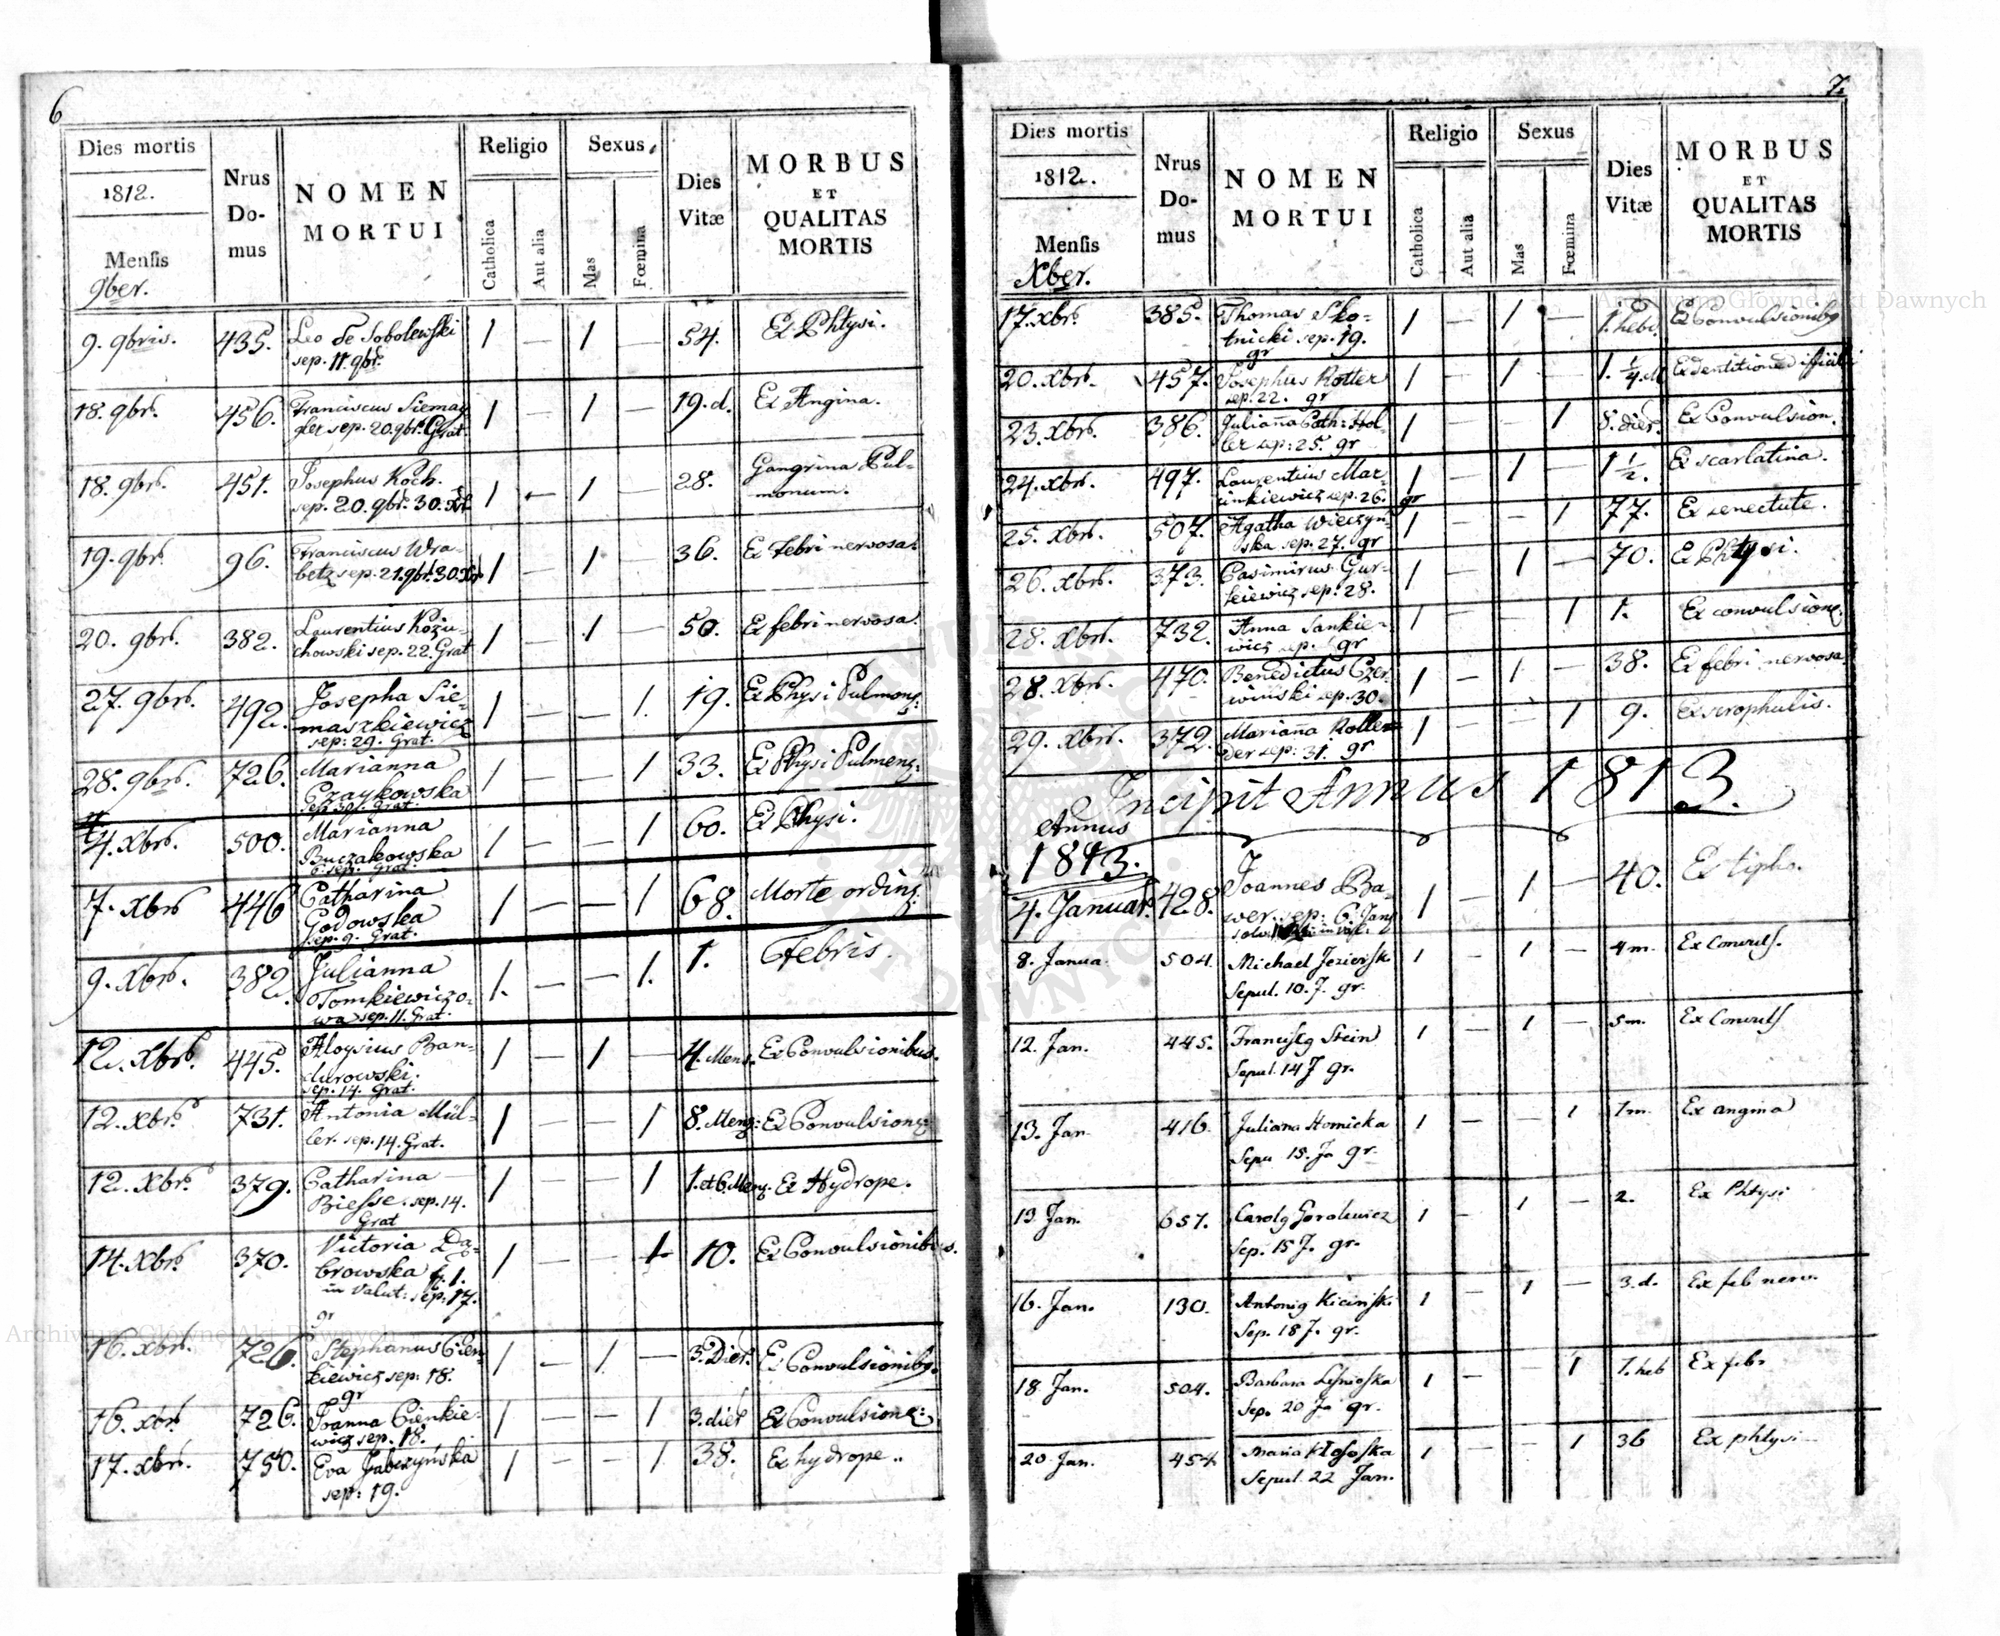 6
Dies mortis
1812.
Mensis
9ber.
Nrus
Do-
mus
NOMEN
MORTUI
Religio
Catholica
Aut alia
Sexus
Mas
Fœmina
Dies
Vitæ
MORBUS
ET
QUALITAS
MORTIS
9. 9bris. 435. Leo de Sobolewski 1 — 1 54. Ex Phtysi.
sep. 11. 9br.
18. 9br. 456. Franciscus 1 — 1 — 19. d. Ex Angina.
sep. 20. 9br. Grat.
18. 9br. 451. Josephus Koch. 1 — 1 — 28. Gangrina Pul-
sep. 20. 9br. 30. monum.
19. 9br. 96. Franciscus Wra- 1 1 — 36. Ex febri nervosa.
betz sep. 21. 9br. 30.
20. 9br. 382. Laurentius Kożu- 1 — 1 — 50. Ex febri nervosa.
chowski sep. 22. Grat
27. 9br. 492. Josepha Sie- 1 — — 1. 19. Ex Physi Pulmon:
maszkiewicz
sep: 29. Grat.
28. 9br. 726. Marianna 1 — — 1 33. Ex Physi Pulmon:
Czaykowska
sep. 30. Grat.
4. Xbr. 500. Marianna 1 — — 1 60. Ex Physi.
Buczakowska
6. sep. Grat.
7. Xbr 446 Catharina 1 — — 1 68. Morte ordin:
Godowska
sep. 9. Grat.
9. Xbr. 382. Julianna 1. — — 1. 1. Febris.
Tomkiewiczo-
wa sep. 11. Grat.
12. Xbr. 445. Aloysius Ban- 1 — 1 — 4. Mens. Ex Convulsionibus.
durowski.
sep. 14. Grat.
12. xbr. 731. Antonia Mül- 1 — — 1 8. Men: Ex Convulsion:
ler. sep. 14. Grat.
12. Xbr. 379. Catharina 1 — — 1 1. et 6. Men. Ex Hydrope.
Biesse. sep. 14.
Grat
14. Xbr. 370. Victoria Da- 1 — — 1 10. Ex Convulsionibus.
browska fr. 1.
in Valut: sep: 17.
gr
16. xbr. 726. Stephanus Cien- 1 — 1 — 3. Dier. Ex Convulsionib.
kiewicz sep: 18.
gr
16. xbr. 726. Joanna Cienkie- 1 — — 1 3. dier Ex Convulsion:
wicz sep. 18.
17. xbr. 750. Eva Jabczyńska 1 — — 1 38. Ex hydrope..
sep: 19.
7.
Dies mortis
1812.
Mensis
Xber.
Nrus
Do-
mus
NOMEN
MORTUI
Religio
Catholica
Aut alia
Sexus
Mas
Fœmina
Dies
Vitæ
MORBUS
ET
QUALITAS
MORTIS
17. xbr. 385. Thomas Sko- 1 — 1 — 1. hebd. Ex Convulsionib
tnicki sep. 19.
gr
20. Xbr. 457. Josephus Kotter 1 — 1 — 1. 1/4. Ex dentitione
sep. 22. gr
23. Xbr. 386. Julianna Cath: Hol- 1 — 1 8. dier. Ex Convulsion.
ler sep: 25. gr
24. xbr. 497. Laurentius Mar- 1 — 1 — 1 1/2. Ex scarlatina.
cinkiewicz sep. 26. gr
25. Xbr. 507. Agatha Wieczyn- 1 — — 1 77. Ex senectute.
ska sep. 27. gr
26. xbr. 373. Casimirus Gur- 1 — 1 — 70. Ex Phtysi.
kiewicz sep: 28.
28. Xbr. 732. Anna Sankie- 1 — — 1 1. Ex convulsion.
wicz sep. gr
28. Xbr. 470. Benedictus Czer- 1 — 1 — 38. Ex febri nervosa
winski sep. 30.
29. Xbr. 372. Marianna Rollen- 1 — — 1 9. Ex scrophulis.
der sep: 31. gr
Incipit Annus 1813.
Annus
1813.
4. Januar. 428. Joannes Ba- 1 — 1 — 40. Ex tipho.
wer. sep: 6. Jan
8. Janua. 504. Michael Jezierski 1 — 1 — 4 m. Ex Convuls.
Sepul. 10. J. gr.
12. Jan. 445. Francisc Stein 1 — 1 — 5 m. Ex Convuls
Sepul. 14 J gr.
13. Jan 416. Juliana Homicka 1 — — 1 1 m. Ex angina
Sepu 15. Ja gr.
13. Jan. 657. Carol Gorolewicz 1 — 1 — 2. Ex Phtysi
Sep. 15 J. gr.
16. Jan. 130. Antoni Kicinski 1 — 1 — 3. d. Ex feb nerv.
Sep. 18 J. gr.
18 Jan. 504. Barbara Lesnioska 1 — — 1 1. heb Ex feb.
Sep. 20 Ja gr.
20 Jan. 454 Maria Kłososka 1 — — 1 36 Ex phtysi
Sepul. 22 Jan.
Archiwum Główne Akt Dawnych
Archiwum Główne Akt Dawnych